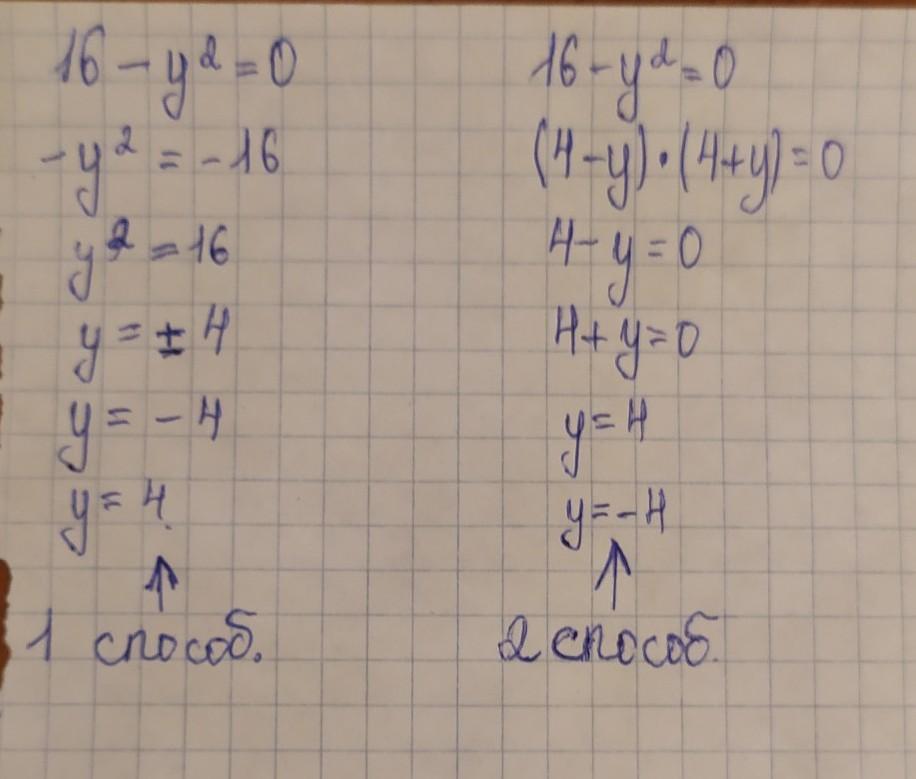 16 - y² = 0
-y² = -16
y² = 16
y = ± 4
y = - 4
y = 4.
1 способ.
16 - y² = 0
(4-y)·(4+y) = 0
4 - y = 0
4 + y = 0
y = 4
y = -4
2 способ.